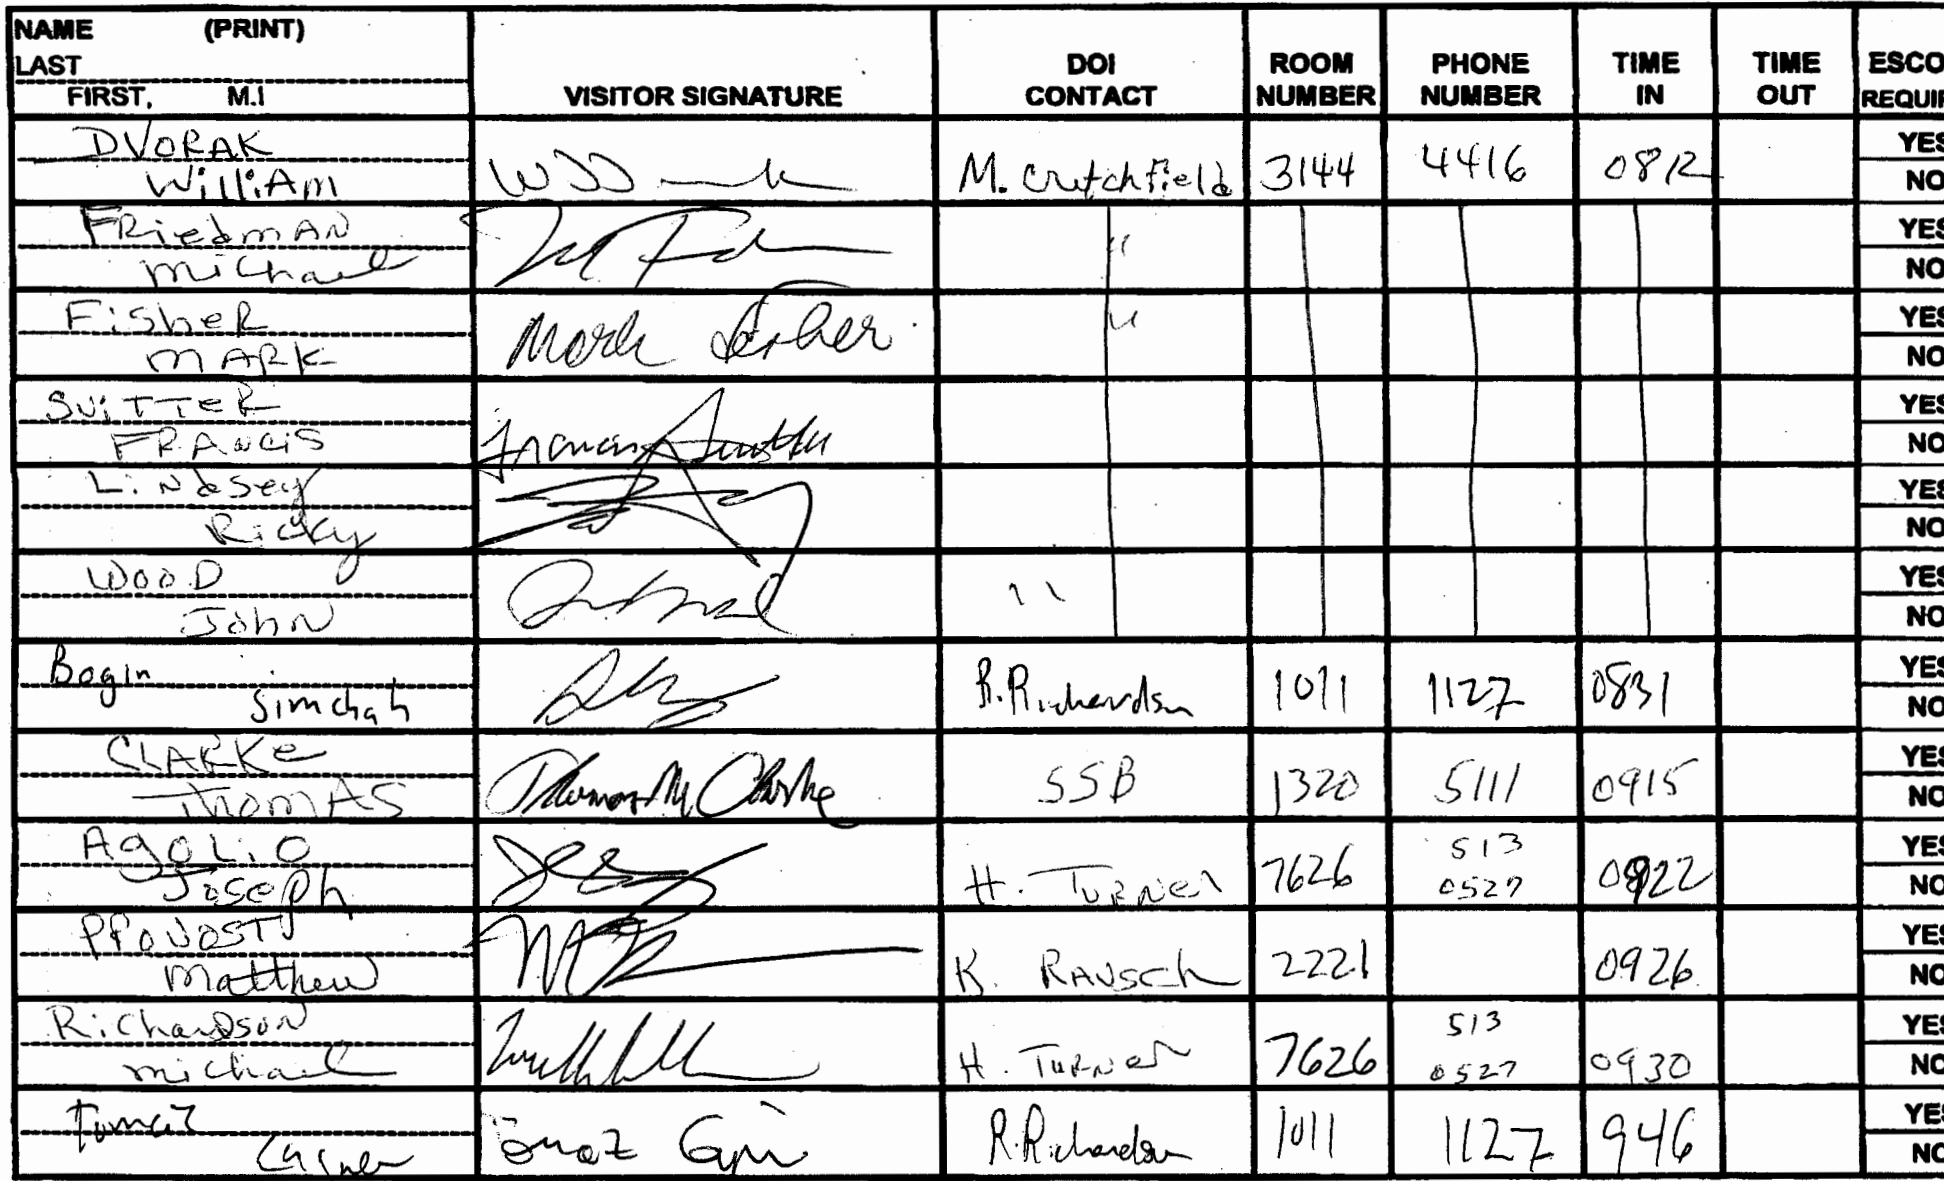 NAME (PRINT)
LAST
FIRST, M.I
VISITOR SIGNATURE
DOI
CONTACT
ROOM
NUMBER
PHONE
NUMBER
TIME
IN
TIME
OUT
ESCO
REQUIR
DVORAK
William
M. Crutchfield 3144 4416 0812
YES
NO
FRiedmAN
michael
"
YES
NO
FisheR
MARK
Mark Fisher
"
YES
NO
SuiTTeR
FRANCiS
Francis
YES
NO
Lindsey
Ricky
YES
NO
WOOD
John
"
YES
NO
Bogin
Simchah
R. Richardson 1011 1127 0831
YES
NO
CLARKe
ThomAS
Thomas M Clarke
SSB 1320 5111 0915
YES
NO
AgOLiO
Joseph
H. TURNeR 7626 513
0527
0922
YES
NO
PROVOST
Matthew
K. RAUSCh 2221 0926
YES
NO
RichaRDsoN
michael
H. TURNeR 7626 513
0527
0930
YES
NO
R. Richardson 1011 1127 946
YES
NO